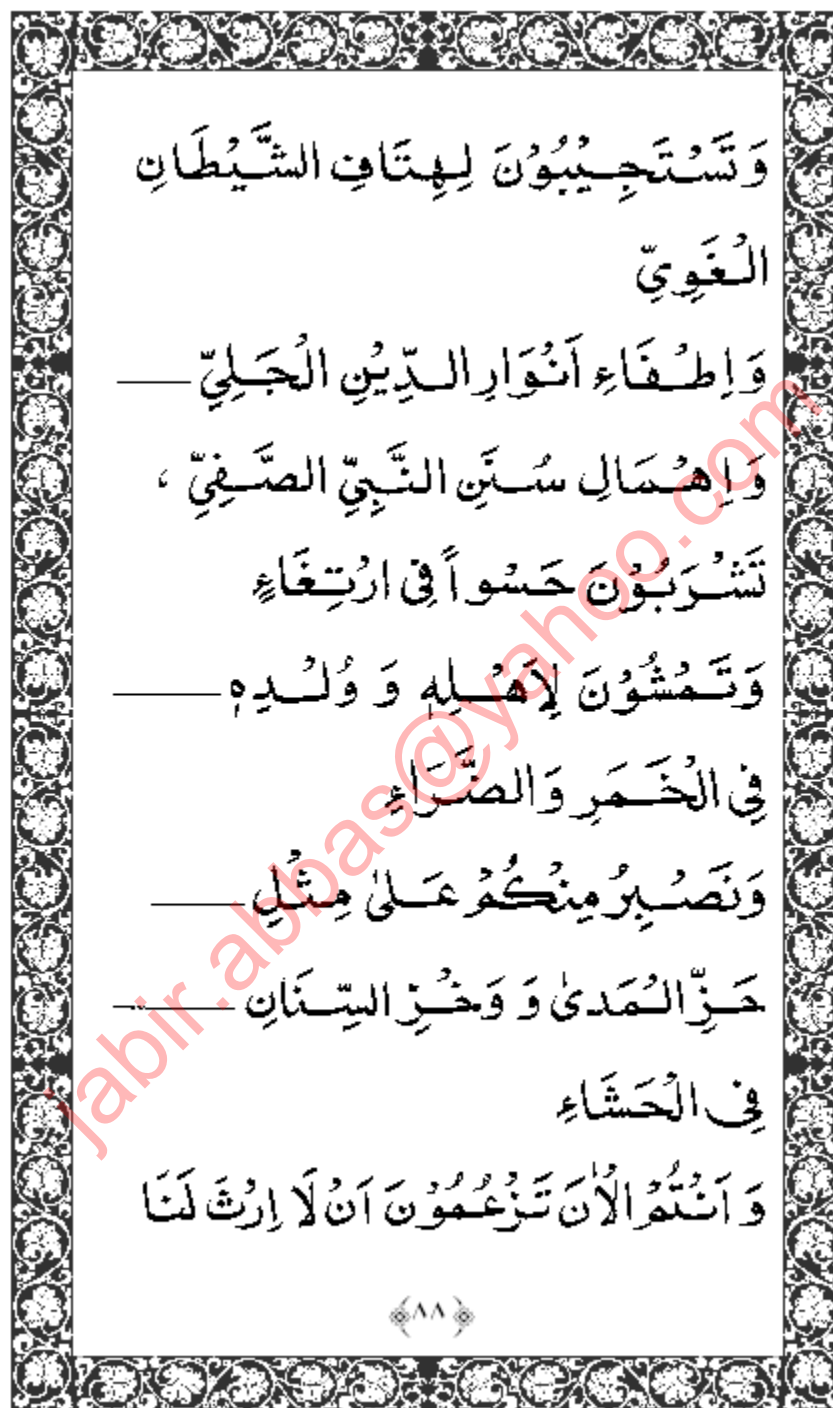 وَ تَسْتَجِيْبُوْنَ لِهِتَافِ الشَّيْطَانِ
الْغَوِيِّ
وَ اِطْفَاءِ اَنْوَارِ الدِّيْنِ الْجَلِيِّ ــــــ
وَ اِهْمَالِ سُنَنِ النَّبِيِّ الصَّفِيِّ ،
تَشْرَبُوْنَ حَسْواً فِى ارْتِغَاءٍ
وَ تَمْشُوْنَ لِاَهْلِهٖ وَ وُلْدِهٖ ــــــ
فِى الْخَمَرِ وَ الضَّرَاءِ
وَ نَصْبِرُ مِنْكُمْ عَلىٰ مِثْلِ ــــــ
حَزِّ الْمُدىٰ وَ وَخْزِ السِّنَانِ ــــــ
فِى الْحَشَاءِ
وَ اَنْتُمُ الْاٰنَ تَزْعُمُوْنَ اَنْ لَا اِرْثَ لَنَا
﴿٨٨﴾
jabir.abbas@yahoo.com